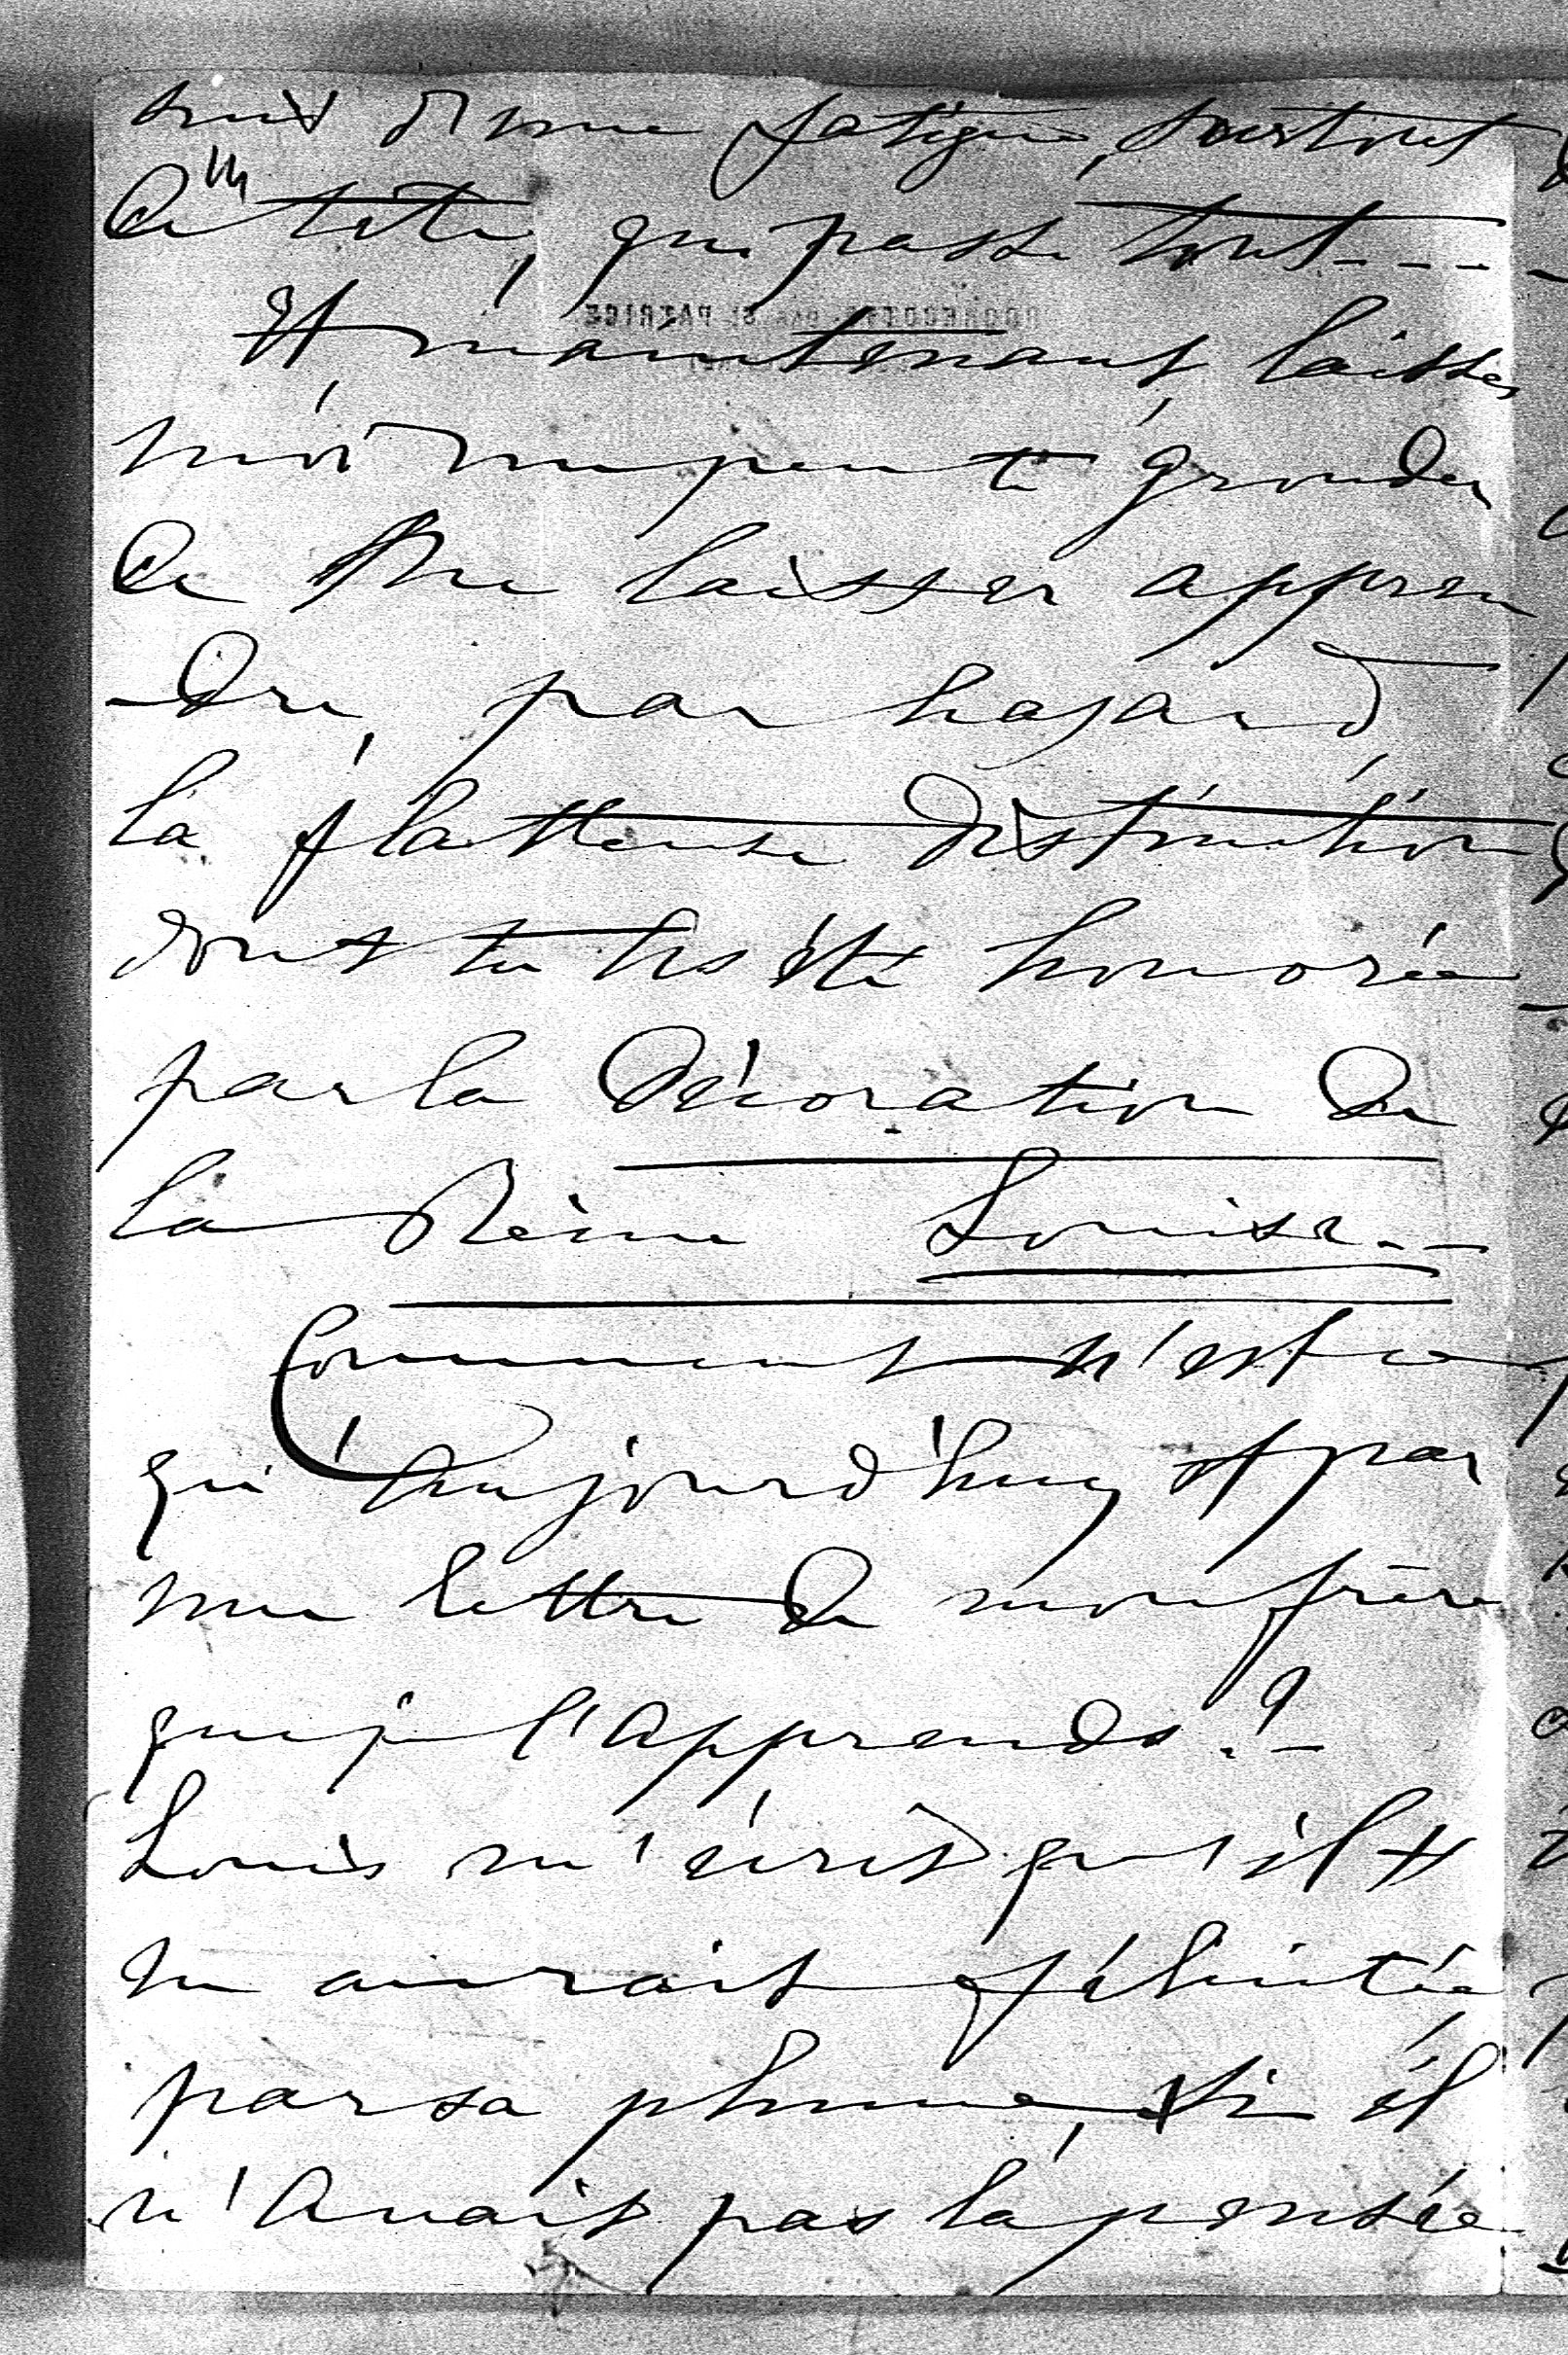 suis d'une fatigue, surtout
de tête, qui passe tout - - - -
Et maintenant, laisses
moi un peu te gronder
de me laisser appren
-dre, par hasard,
la flatteuse distinction
dont tu as été honorée
par la Décoration de
la Reine Louise. -
Comment n'est ce
qu'aujourd'huy et par
une lettre de mon frère
que je l'apprends ? -
Louis m'écrit qu'il t'
en aurait félicitée,
par sa plume, si il
n'avait pas la pensée